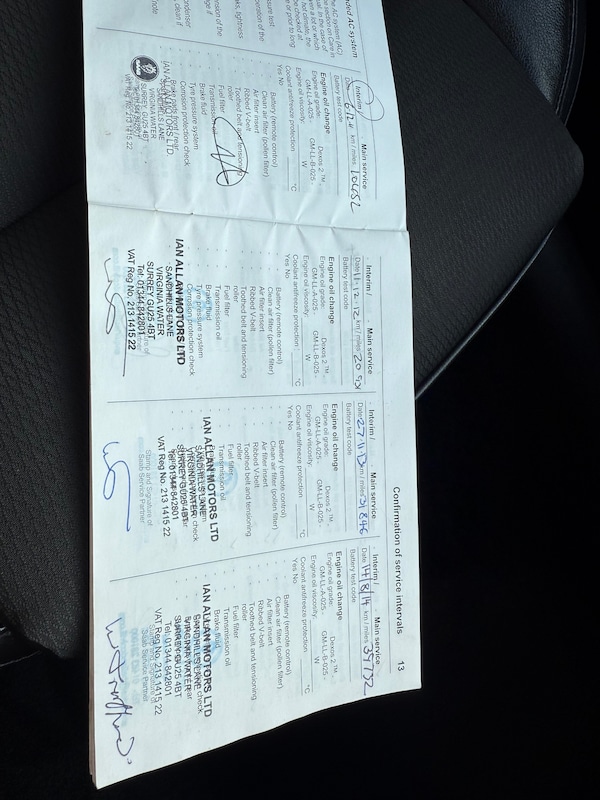 Confirmation of service intervals 13
Interim / Main service
km / miles 10652
Battery test code
Engine oil change
Engine oil grade: Dexos 2 ™
GM-LL-A-025 - GM-LL-B-025 -
Engine oil viscosity: W
Coolant antifreeze protection °C
Yes No
Battery (remote control)
Clean air filter (pollen filter)
Air filter insert
Ribbed V-belt
Toothed belt and tensioning
roller
Fuel filter
Transmission oil
Brake fluid
Tyre pressure system
Corrosion protection check
IAN ALLAN MOTORS LTD
VIRGINIA WATER
SURREY, GU25 4BT
VAT Reg No. 213 1415 22
Interim / Main service
Date 11-12-12 km / miles
Battery test code
Engine oil change
Engine oil grade: Dexos 2 ™
GM-LL-A-025 - GM-LL-B-025 -
Engine oil viscosity: W
Coolant antifreeze protection °C
Yes No
Battery (remote control)
Clean air filter (pollen filter)
Air filter insert
Ribbed V-belt
Toothed belt and tensioning
roller
Fuel filter
Transmission oil
Brake fluid
Tyre pressure system
Corrosion protection check
IAN ALLAN MOTORS LTD
SANDHILLS LANE
VIRGINIA WATER
SURREY GU25 4BT
Tel: 01344 842801
VAT Reg No. 213 1415 22
Interim / Main service
Date 27-11-13 km / miles 31896
Battery test code
Engine oil change
Engine oil grade: Dexos 2 ™
GM-LL-A-025 - GM-LL-B-025 -
Engine oil viscosity: W
Coolant antifreeze protection °C
Yes No
Battery (remote control)
Clean air filter (pollen filter)
Air filter insert
Ribbed V-belt
Toothed belt and tensioning
roller
Fuel filter
Transmission oil
IAN ALLAN MOTORS LTD
SANDHILLS LANE
VIRGINIA WATER
SURREY GU25 4BT
Tel: 01344 842801
VAT Reg No. 213 1415 22
Stamp and Signature of
Saab Service Partner
Interim / Main service
Date 14/8/14 km / miles 39732
Battery test code
Engine oil change
Engine oil grade: Dexos 2 ™
GM-LL-A-025 - GM-LL-B-025 -
Engine oil viscosity: W
Coolant antifreeze protection °C
Yes No
Battery (remote control)
Clean air filter (pollen filter)
Air filter insert
Ribbed V-belt
Toothed belt and tensioning
roller
Fuel filter
Transmission oil
Brake fluid
IAN ALLAN MOTORS LTD
SANDHILLS LANE
VIRGINIA WATER
SURREY GU25 4BT
Tel: 01344 842801
VAT Reg No. 213 1415 22
Saab Service Partner